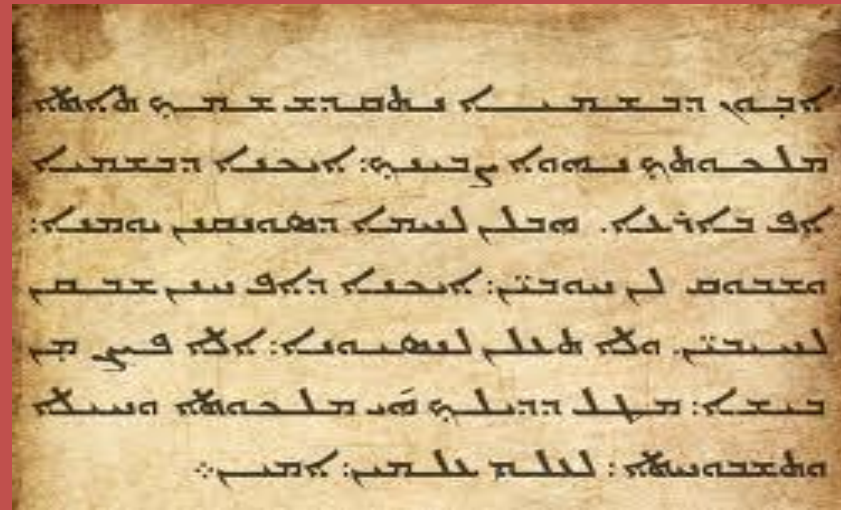 ܐܒܘܢ ܕܒܫܡܝܐ ܢܬܩܕܫ ܫܡܟ ܬܐܬܐ
ܡܠܟܘܬܟ ܢܗܘܐ ܨܒܝܢܟ: ܐܝܟܢܐ ܕܒܫܡܝܐ
ܐܦ ܒܐܪܥܐ. ܗܒܠܢ ܠܚܡܐ ܕܣܘܢܩܢܢ ܝܘܡܢܐ:
ܘܫܒܘܩ ܠܢ ܚܘܒܝ̈ܢ: ܐܝܟܢܐ ܕܐܦ ܚܢܢ ܫܒܩܢ
ܠܚܝܒܝ̈ܢ. ܘܠܐ ܬܥܠܢ ܠܢܣܝܘܢܐ: ܐܠܐ ܦܨܢ ܡܢ
ܒܝܫܐ: ܡܛܠ ܕܕܝܠܟ ܗ̇ܝ ܡܠܟܘܬܐ ܘܚܝܠܐ
ܘܬܫܒܘܚܬܐ: ܠܥܠܡ ܥܠܡܝܢ: ܐܡܝܢ܀